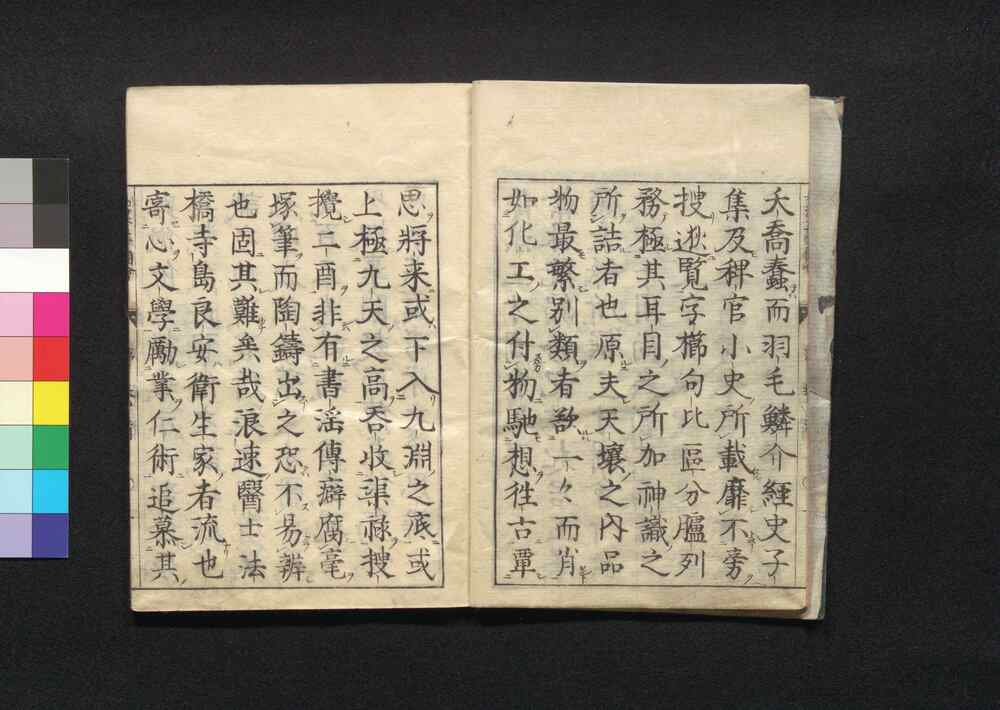 夭喬蠢而羽毛鱗介經史子
集及稗官小史所載靡不旁
捜迯覽字櫛句比區分臚列
務極其耳目之所加神識之
所詰者也原夫天壤之内品
物最繁別類者欲一々而肖
如化工之付物馳想徃古覃
思將来或下入九淵之底或
上極九天之高吞收渠祿搜
攪二酉非有書滛傳癖腐毫
塚筆而陶鑄出之恐不易辨
也固其難矣哉浪速醫士法
橋寺島良安衛生家者流也
寄心文學勵業仁術追慕其